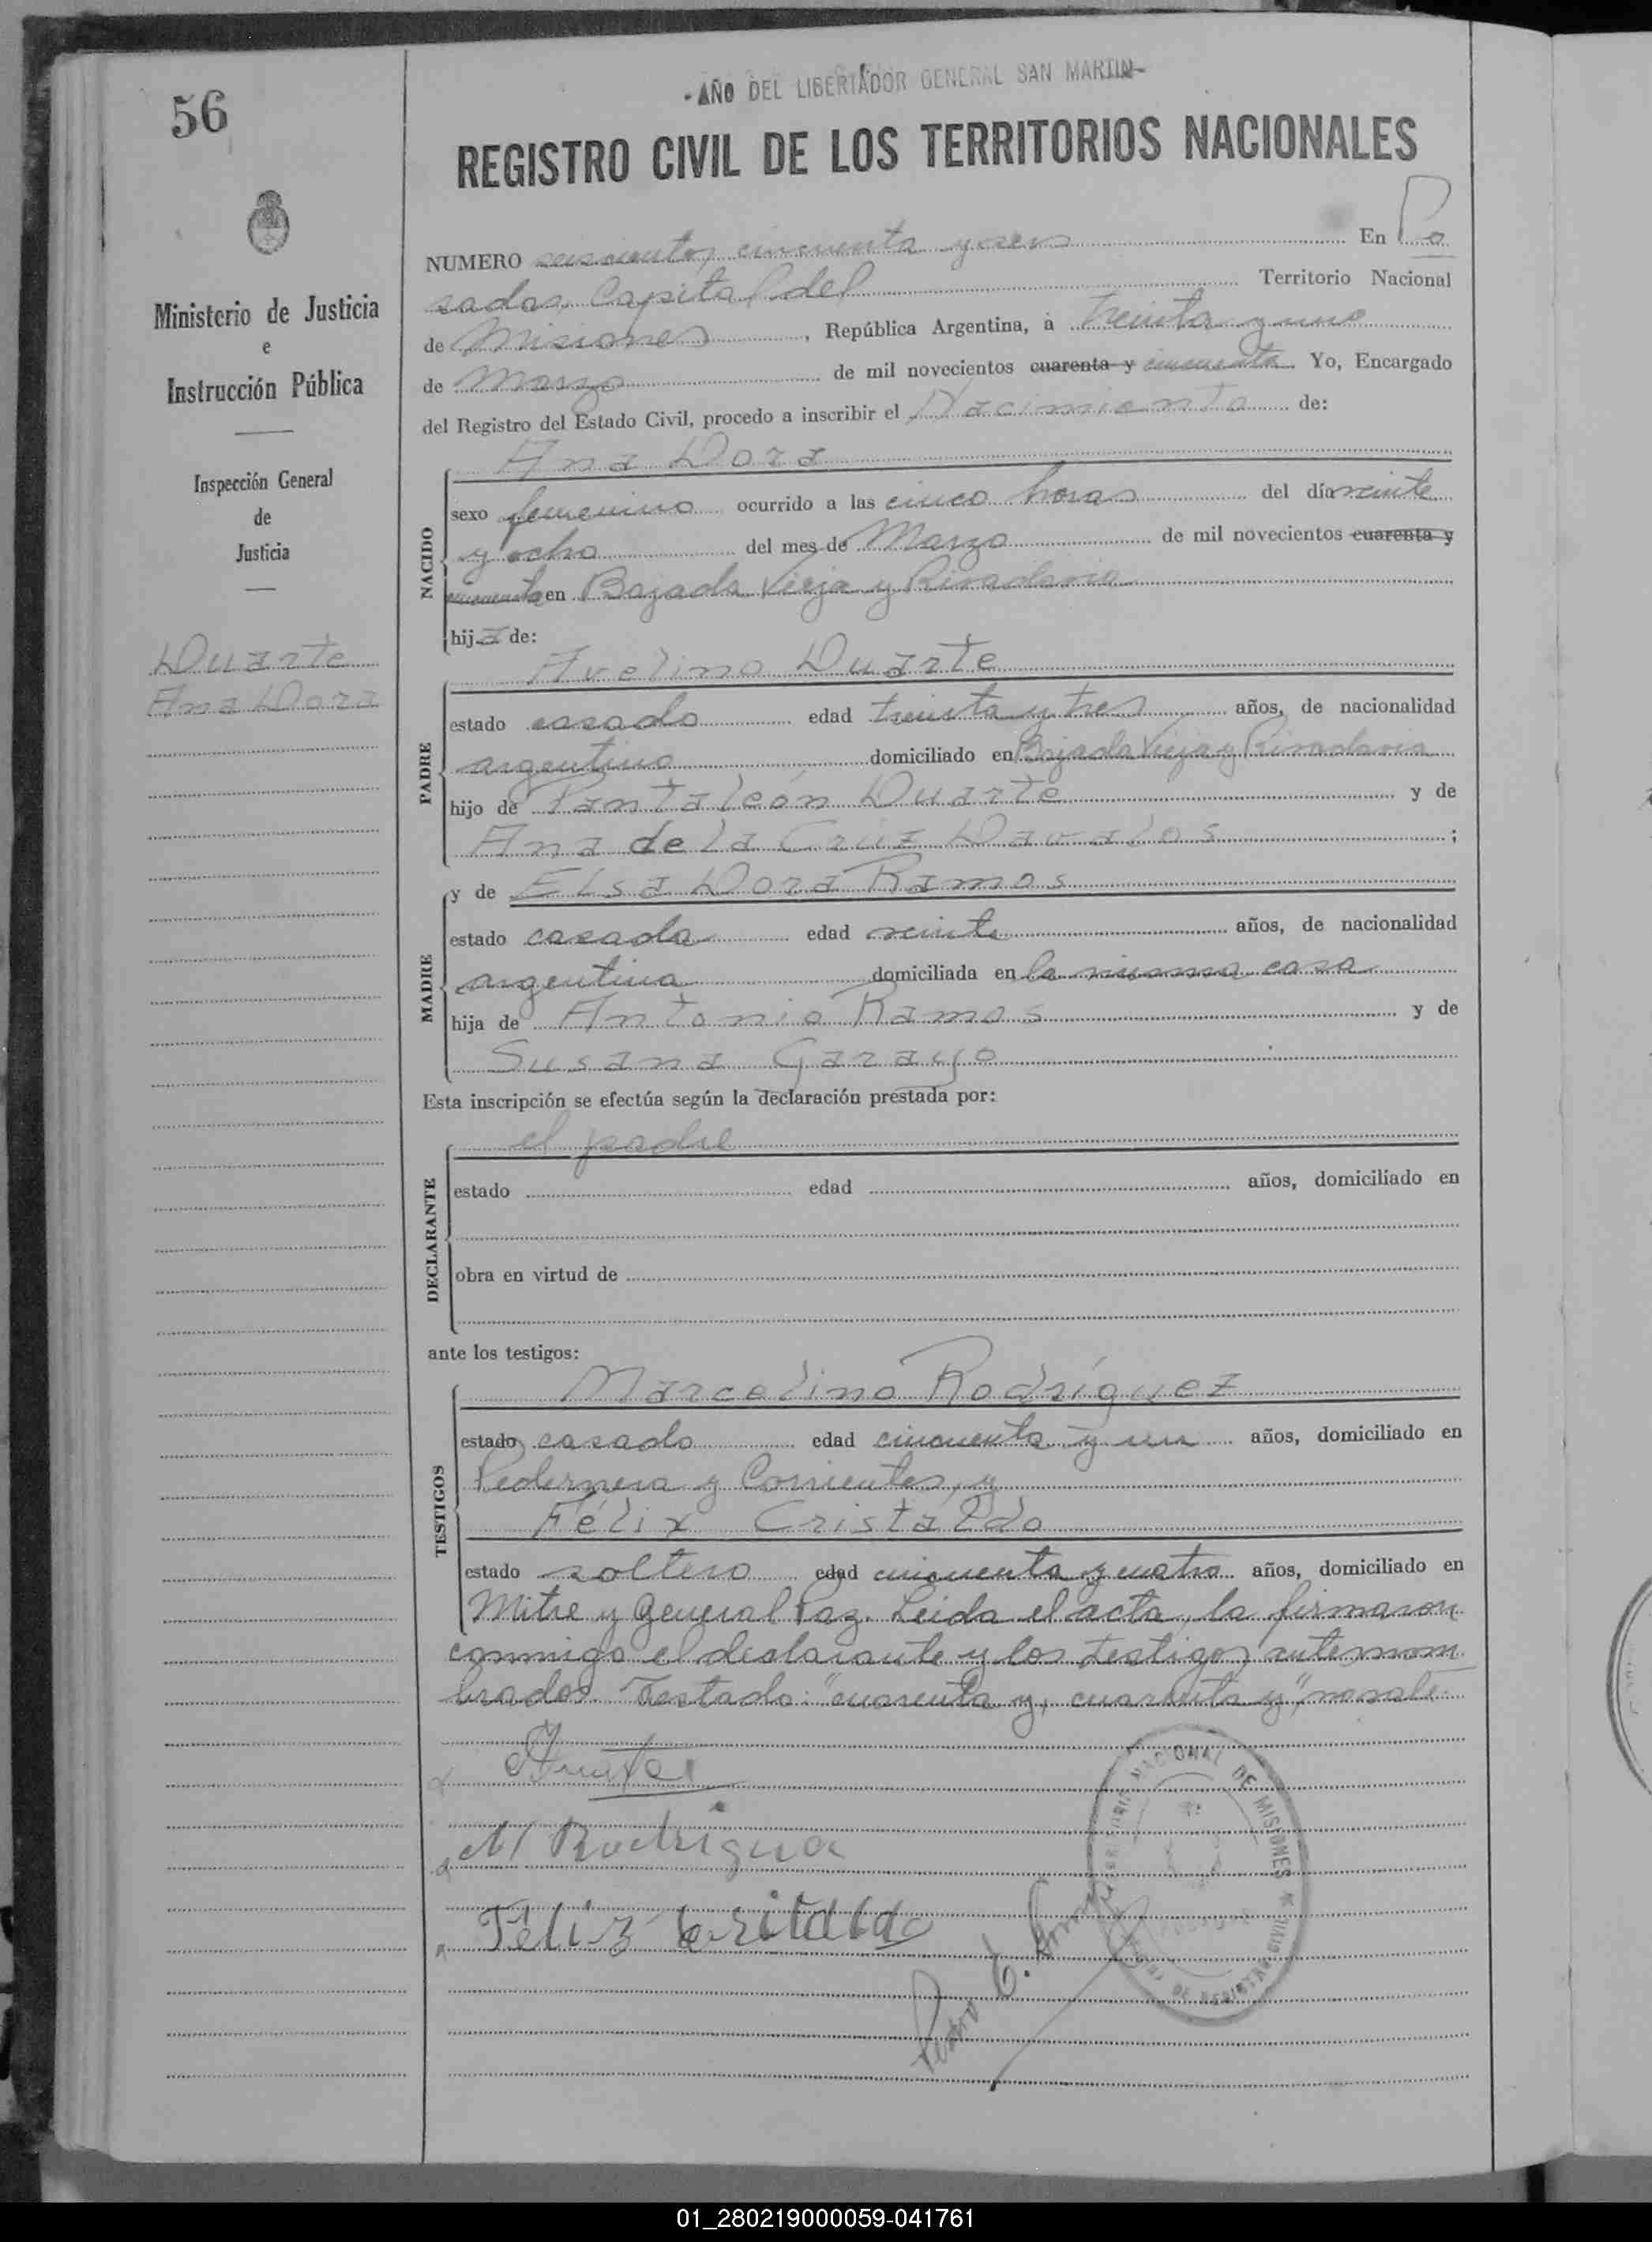 56
- AÑO DEL LIBERTADOR GENERAL SAN MARTIN -
REGISTRO CIVIL DE LOS TERRITORIOS NACIONALES
Ministerio de Justicia
e
Instrucción Pública
Inspección General
de
Justicia
Duarte
Ana Dora
NUMERO seiscientos cincuenta y seis En Po
sadas, Capital del Territorio Nacional
de Misiones, República Argentina, a treinta y uno
de Marzo de mil novecientos cuarenta y cincuenta Yo, Encargado
del Registro del Estado Civil, procedo a inscribir el Nacimiento de:
NACIDO
Ana Dora
sexo femenino ocurrido a las cinco horas del día veinte
y ocho del mes de Marzo de mil novecientos cuarenta y
cincuenta en Bajada Vieja y Rivadavia
hija de:
PADRE
Avelino Duarte
estado casado edad treinta y tres años, de nacionalidad
argentino domiciliado en Bajada Vieja y Rivadavia
hijo de Pantaleón Duarte y de
Ana de la Cruz Davalos;
MADRE
y de Elsa Dora Ramos
estado casada edad veinte años, de nacionalidad
argentina domiciliada en la misma casa
hija de Antonio Ramos y de
Susana Garayo
Esta inscripción se efectúa según la declaración prestada por:
DECLARANTE
el padre
estado edad años, domiciliado en
obra en virtud de
ante los testigos:
TESTIGOS
Marcelino Rodríguez
estado casado edad cincuenta y un años, domiciliado en
Pedernera y Corrientes, y
Félix Cristaldo
estado soltero edad cincuenta y cuatro años, domiciliado en
Mitre y General Paz. Leida el acta, la firmaron
conmigo el declarante y los testigos antenom
brados. Testado: "cuarenta y, cuarenta y", no vale.
M Rodrigue
Féliz Critaldo
NACIONAL DE MISIONES
01_280219000059-041761